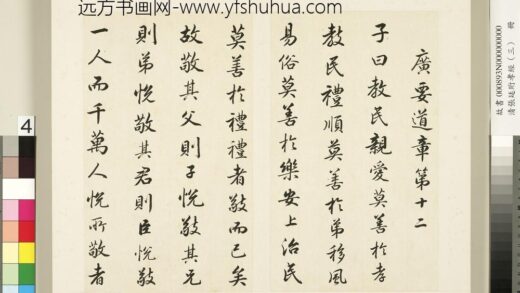 远方书画网-www.yfshuhua.com
廣要道章第十二
子曰教民親愛莫善於孝
教民禮順莫善於弟移風
易俗莫善於樂安上治民
莫善於禮禮者敬而已矣
故敬其父則子悅敬其兄
則弟悅敬其君則臣悅敬
一人而千萬人悅所敬者
故書 000893N000000000 冊
孝經（三）
4